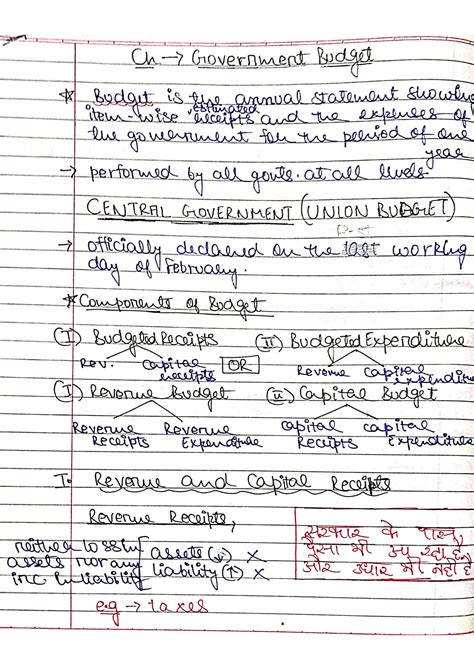 Ch → Government Budget
* Budget is the annual statement showing
item-wise estimated receipts and the expenses of
the government for the period of one
year
→ performed by all govts. at all levels.
CENTRAL GOVERNMENT (UNION BUDGET)
→ officially declared on the last working
day of February.
* Components of Budget
(I) Budgeted Receipts (II) Budgeted Expenditure
Rev. Capital receipts OR Revenue Capital expenditure
(I) Revenue Budget (ii) Capital Budget
Revenue Receipts Revenue Expenditure Capital Receipts Capital Expenditure
I. Revenue and Capital Receipts
Revenue Receipts,
neither loss in assets nor any inc in liability
assets (↓) ×
liability (↑) ×
सरकार के पास
पैसा भी आ रहा है,
और उधार भी नहीं है
e.g → taxes